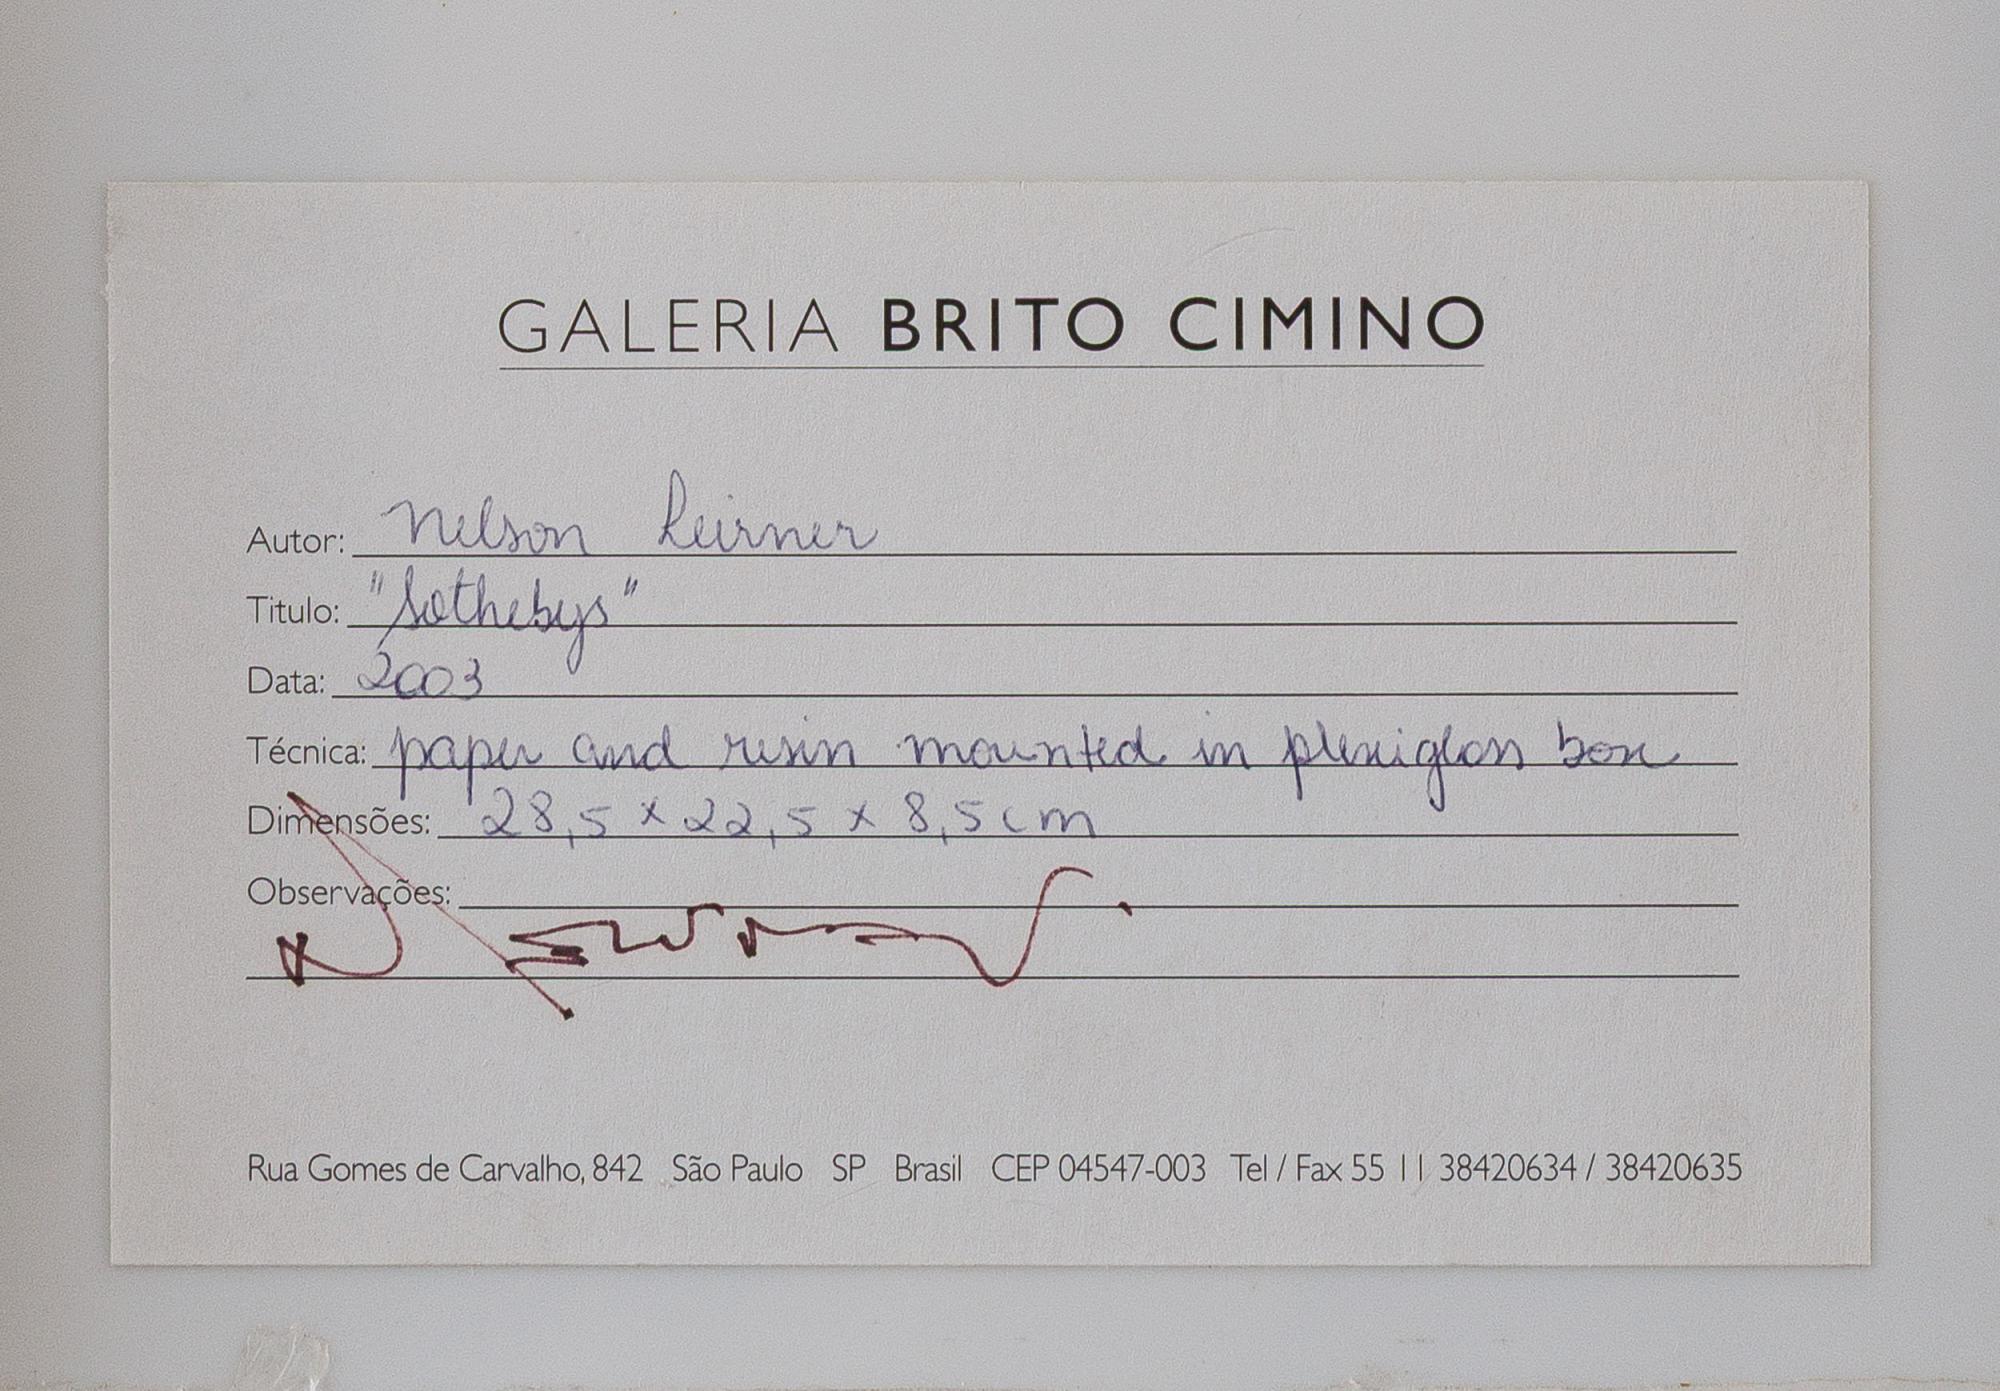 GALERIA BRITO CIMINO
Autor: Nelson Leirner
Titulo: "Sothebys"
Data: 2003
Técnica: paper and resin mounted in plexiglass box
Dimensões: 28,5 x 22,5 x 8,5 cm
Observações:
Rua Gomes de Carvalho, 842 São Paulo SP Brasil CEP 04547-003 Tel / Fax 55 11 38420634 / 38420635